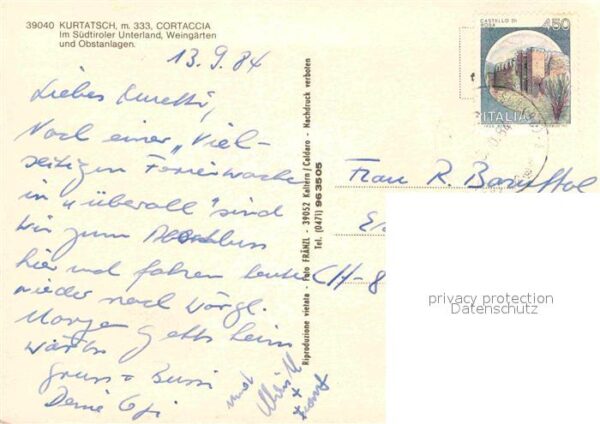 39040 KURTATSCH, m. 333, CORTACCIA
Im Südtiroler Unterland, Weingärten
und Obstanlagen.
13.9.84
Liebes
Nach einer "Viel-
seitigen Ferienwoche
in "überall" sind
wir zum Abschluss
hier und fahren heute
wieder nach Wörgl.
Morgen geht's heim
wärts
Gruss + Bussi
Deine
und
+
Riproduzione vietata - Foto FRÄNZL - 39052 Kaltern/Caldaro - Nachdruck verboten
Tel. (0471) 963505
CASTELLO DI
450
ITALIA
Frau R.
CH-8
privacy protection
Datenschutz